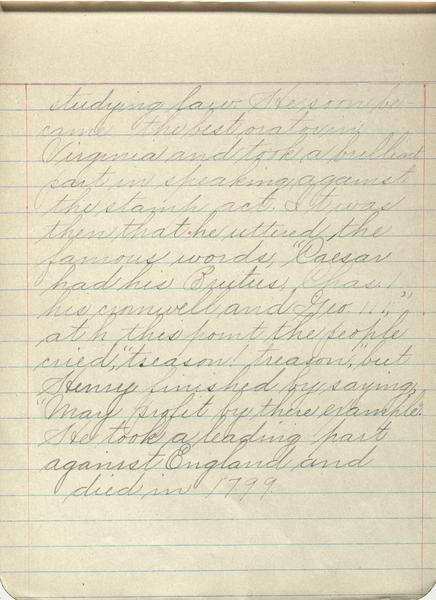 studying law. He soon be
came the best orator in
Virginia and took a brilliant
part in speaking against
the stamp act. It was
then that he uttered the
famous words, "Caesar
had his Brutus, Chas. I
his cromwell and Geo III,"
at h this point the people
cried, "treason! treason," but
Henry finished by saying,
"May profit by there example".
He took a leading part
against England and
died in 1799